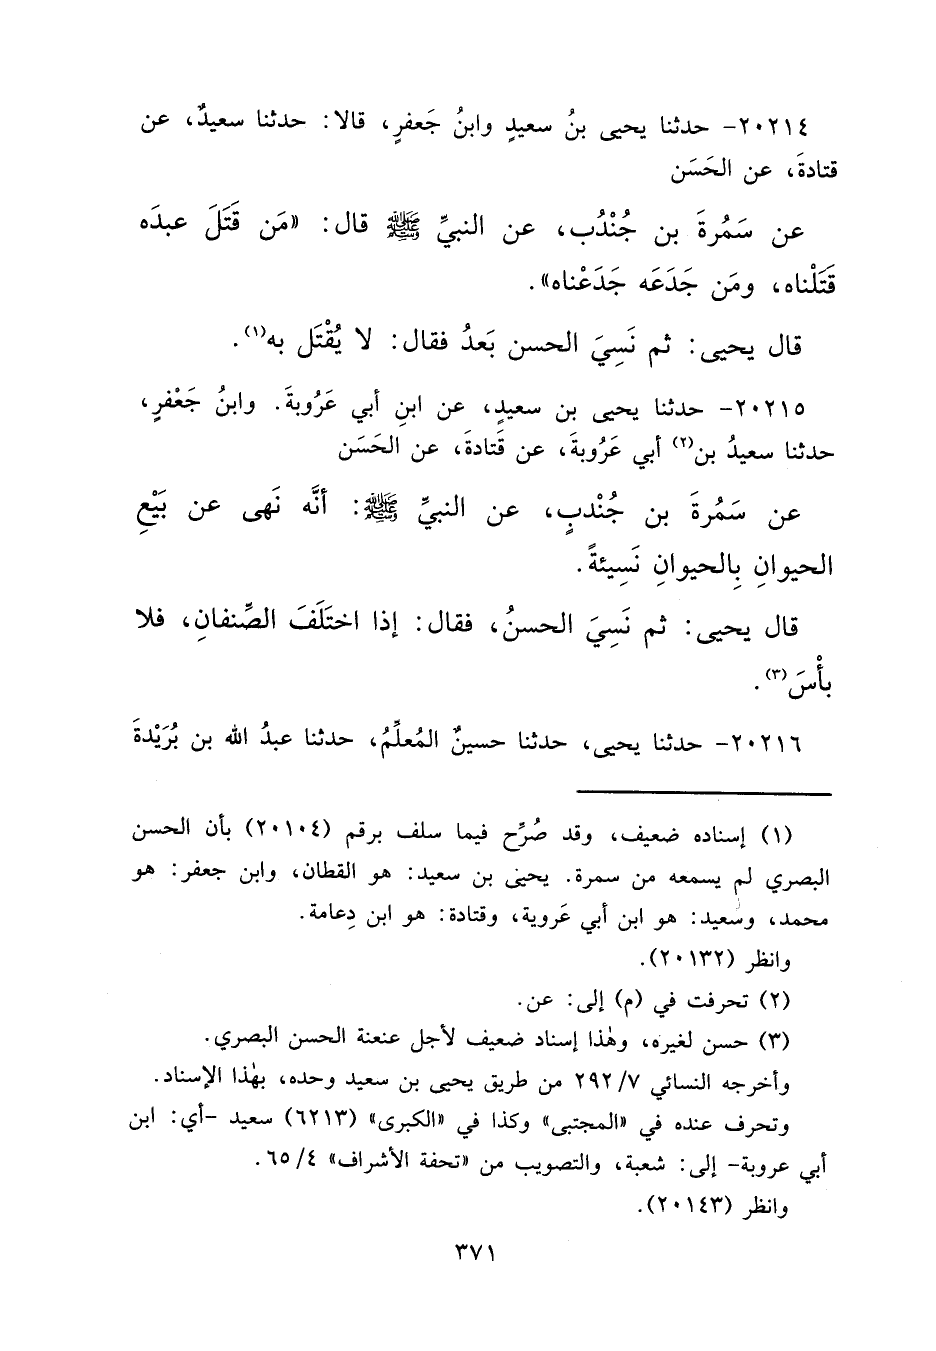 ٢٠٢١٤- حدثنا يحيى بنُ سعيدٍ وابنُ جَعفرٍ، قالا: حدثنا سعيدٌ، عن
قتادةَ، عن الحَسَن
عن سَمُرةَ بن جُنْدُب، عن النبيِّ ﷺ قال: «مَن قَتَلَ عبدَه
قَتَلْناه، ومَن جَدَعَه جَدَعْناه».
قال يحيى: ثم نَسِيَ الحسن بَعدُ فقال: لا يُقْتَل به(١).
٢٠٢١٥- حدثنا يحيى بن سعيدٍ، عن ابنِ أبي عَرُوبةَ. وابنُ جَعْفرٍ،
حدثنا سعيدُ بن(٢) أبي عَرُوبةَ، عن قَتادةَ، عن الحَسَن
عن سَمُرةَ بن جُنْدبٍ، عن النبيِّ ﷺ: أنَّه نَهى عن بَيْعِ
الحيوانِ بِالحيوانِ نَسِيئةً.
قال يحيى: ثم نَسِيَ الحسنُ، فقال: إذا اختَلَفَ الصِّنفانِ، فلا
بأْسَ(٣).
٢٠٢١٦- حدثنا يحيى، حدثنا حسينٌ المُعلِّمُ، حدثنا عبدُ الله بن بُرَيْدةَ
(١) إسناده ضعيف، وقد صُرِّح فيما سلف برقم (٢٠١٠٤) بأن الحسن
البصري لم يسمعه من سمرة. يحيى بن سعيد: هو القطان، وابن جعفر: هو
محمد، وسعيد: هو ابن أبي عَروبة، وقتادة: هو ابن دِعامة.
وانظر (٢٠١٣٢).
(٢) تحرفت في (م) إلى: عن.
(٣) حسن لغيره، وهٰذا إسناد ضعيف لأجل عنعنة الحسن البصري.
وأخرجه النسائي ٢٩٢/٧ من طريق يحيى بن سعيد وحده، بهٰذا الإسناد.
وتحرف عنده في «المجتبى» وكذا في «الكبرى» (٦٢١٣) سعيد -أي: ابن
أبي عروبة- إلى: شعبة، والتصويب من «تحفة الأشراف» ٦٥/٤.
وانظر (٢٠١٤٣).
٣٧١